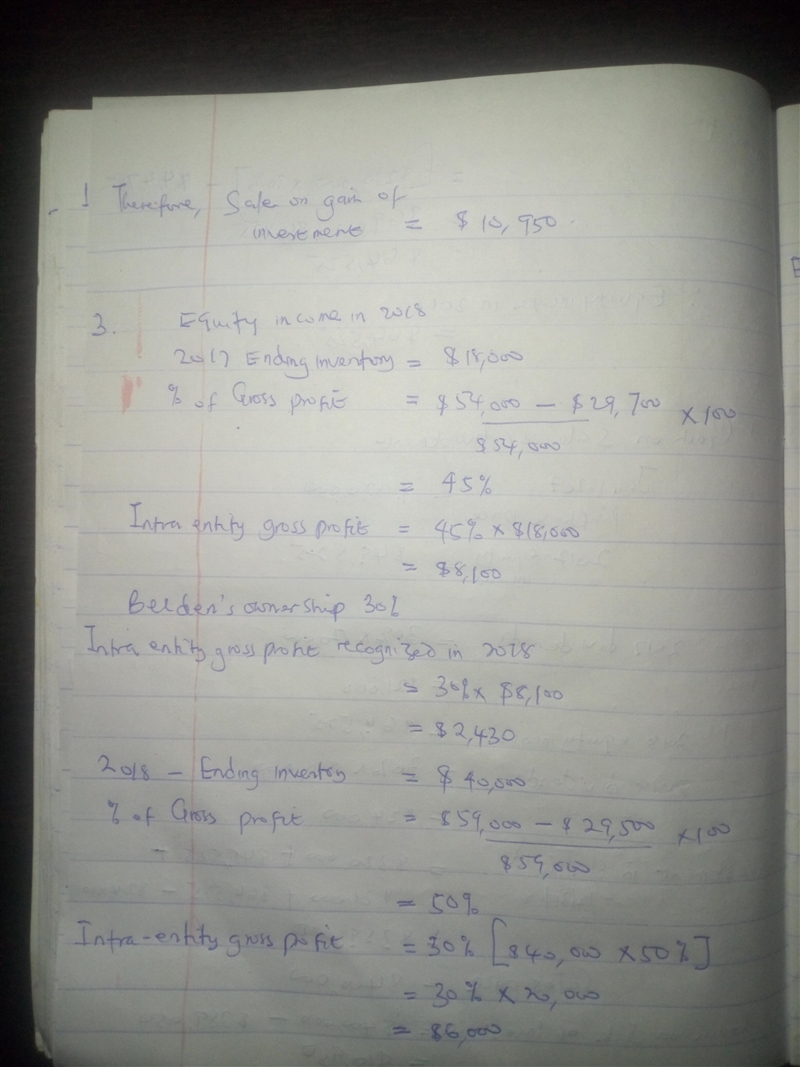 1 Therefore, Sale on gain of
investment = $10,950.
3. Equity income in 2018
2017 Ending inventory = $18,000
% of Gross profit = $54,000 - $29,700 × 100
$54,000
= 45%
Intra entity gross profit = 45% × $18,000
= $8,100
Belden's ownership 30%
Intra entity gross profit recognized in 2018
= 30% × $8,100
= $2,430
2018 - Ending inventory = $40,000
% of Gross profit = $59,000 - $29,500 × 100
$59,000
= 50%
Intra-entity gross pofit = 30% [$40,000 × 50%]
= 30% × 20,000
= $6,000